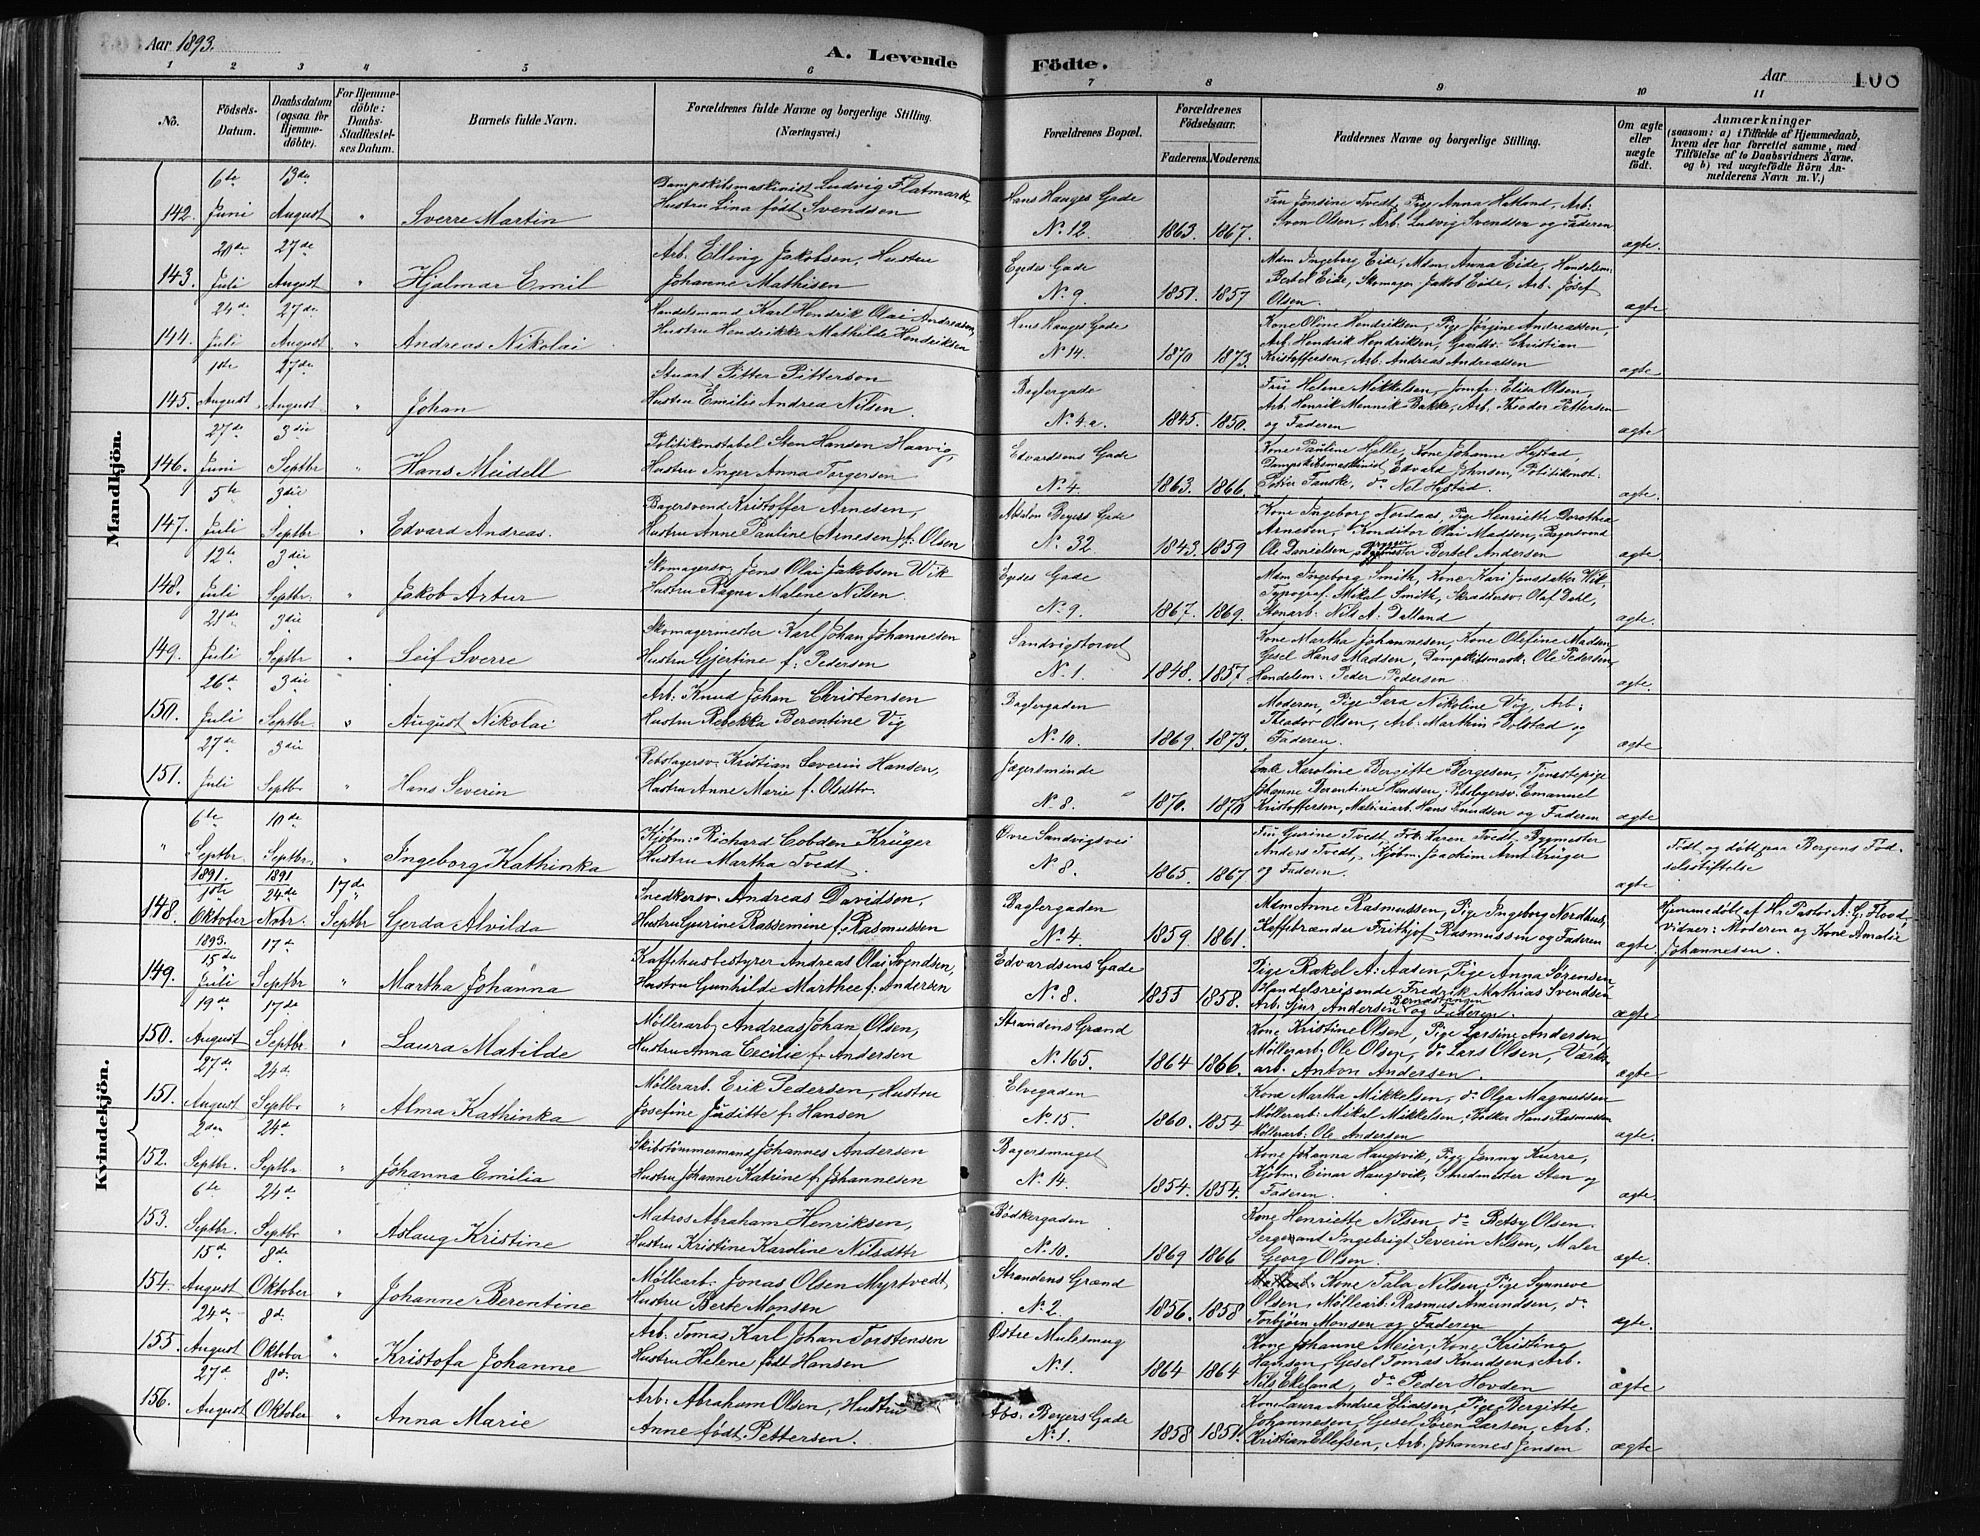 Aar 1893.
A. Levende Födte.
Aar 108
1 2 3 4 5 6 7 8 9 10 11
No. Födsels-Datum. Daabsdatum (ogsaa for Hjemme-döbte). For Hjemme-döbte: Daabs-Stadfæstel-ses Datum. Barnets fulde Navn. Forældrenes fulde Navne og borgerlige Stilling. (Næringsvei.) Forældrenes Bopæl. Forældrenes Födselsaar. Faderens. Moderens. Faddernes Navne og borgerlige Stilling. Om ægte eller uægte födt. Anmærkninger (saasom: a) i Tilfælde af Hjemmedaab, hvem der har forrettet samme, med Tilföielse af to Daabsvidners Navne. og b) ved uægtefödte Börn An-melderens Navn m. V.)
Mandkjön.
142. 6te Juni 13de August " Sverre Martin
Dampskibsmaskinist Ludvig Flatmark
Hustru Lina født Svendsen
Hans Hauges Gade No. 12. 1863. 1867.
Fru Jonsine Tvedt, Pige Anna Hatland, Arb:
Sven Olsen, Arb. Ludvig Svendsen og Faderen
ægte.
143. 20de Juli 27de August " Hjalmar Emil
Arb. Elling Jakobsen, Hustru
Johanne Mathisen
Egedes Gade No. 9. 1851. 1857
Mdm Ingeborg Eide, Mdm. Anna Eide, Handelsm:
Bertel Eide, Skomager Jakob Eide, Arb. Josef
Olsen.
ægte
144. 24de Juli 27de August " Andreas Nikolai
Handelsmand Karl Hendrik Olai Andreasen,
Hustru Hendrikke Mathilde Hendriksen
Hans Hauges Gade No. 14. 1870 1873.
Kone Oline Hendriksen, Pige Jørgine Andreassen,
Arb. Hendrik Hendriksen, Christian
Kristoffersen, Arb. Andreas Andreassen
ægte
145. 1ste August 27de August " Johan
Stuart Pitter Pitterson
Hustru Emilie Andrea Nilsen.
Baglergade No. 4a. 1845. 1850.
Fru Helene Mikkelsen, Jomfr: Elisa Olsen,
Arb. Henrik Mennik Bakke, Arb. Theodor Pettersen
og Faderen
ægte
146. 27de Juni 3die Septbr " Hans Meidell
Politikonstabel Sten Hansen Haavig,
Hustru Inger Anna Torgersen
Edvardsens Gade No. 4 1863. 1866.
Kone Pauline Hjelle, Kone Johanne Hystad,
Dampskibsmaskinist Edvard Johnsen, Politikonst:
Peder Fanske, do Nel Hystad.
ægte.
147. 5te Juli 3die Septbr " Edvard Andreas.
Bagersvend Kristoffer Arnesen,
Hustru Anne Pauline (Arnesen) f. Olsen
Absalon Beyers Gade No. 32. 1843. 1859
Kone Ingeborg Nordaas, Pige Henriette Dorothea
Arnesen, Konditor Olai Madsen, Bagersvend
Ole Danielsen, Bertel Andersen
ægte
148. 12te Juli 3die Septbr. " Jakob Artur
Skomagersv. Jens Olai Jakobsen Wik
Hustru Ragna Malene Nilsen.
Egedes Gade No. 9. 1867. 1869.
Mdm Ingeborg Smith, Kone Kari Jonsdatter Wik,
Typograf Mikal Smith, Skræddersv. Olaf Dahl,
Stenarb. Nils A. Dalland
ægte.
149. 21de Juli 3die Septbr " Leif Sverre
Skomagermester Karl Johan Johannesen
Hustru Gjertine f. Pedersen
Sandvigstorvet No. 1. 1848. 1857
Kone Martha Johannesen, Kone Olefine Madsen,
Gesel Hans Madsen, Dampskibsmask: Ole Pedersen,
Handelsm. Peder Pedersen.
ægte
150. 26d Juli 3die Septbr " August Nikolai
Arb. Knud Johan Christensen
Hustru Rebekka Berentine Vig
Baglergaden No. 10. 1869. 1873.
Moderen, Pige Sara Nikoline Vig, Arb:
Theodor Olsen, Arb. Marthin Bolstad og
Faderen.
ægte
151. 27de Juli 3die Septbr " Hans Severin
Rebslagersv. Kristian Severin Hansen,
Hustru Anne Marie f. Oldtbr.
Jægersminde No. 8. 1870. 1870
Enke Karoline Bergitte Bergesen, Tjenestepige
Johanne Berentine Hanssen, Rebslagersv. Emanuel
Kristoffersen, Hans Knudsen og Faderen
ægte
Kvindekjön.
" 6te Septbr. 10de Septbr. " Ingeborg Kathinka
Kjøbm: Richard Cobden Krüger
Hustru Martha Tvedt.
Øvre Sandvigsvei No. 8. 1865. 1867
Fru Gurine Tvedt, Frk. Karen Tvedt, Bygmester
Anders Tvedt, Kjøbm. Joachim Arnt Krüger
og Faderen.
ægte
Født og døbt paa Bergens Fød-
selsstiftelse
148. 1891. 1ste Oktober 1891 24de Novbr. 17de Septbr Gerda Alvilda
Snedkersv. Andreas Davidsen,
Hustru Gurine Rassemine f. Rasmussen
Baglergaden No. 4. 1859 1861.
Mdm Anne Rasmussen, Pige Ingeborg Nordhus,
Kaffebrænder Frithjof Rasmussen og Faderen
ægte.
Hjemmedøbt af Hr. Pastor A. G. Flood,
Vidner: Moderen og Kone Amalie
Johannesen.
149. 1893. 15de Juli 17d Septbr " Martha Johanna
Kaffehusbestyrer Andreas Olai Svendsen,
Hustru Gunhilde Marthee f. Andersen
Edvardsens Gade No. 8. 1855 1858.
Pige Rakel A. Aasen, Pige Anna Sørensen,
Handelsreisende Fredrik Mathias Svendsen
Arb. Sjur Andersen og Faderen.
ægte.
150. 19de August 17de Septbr. " Laura Matilde
Møllerarb. Andreas Johan Olsen,
Hustru Anna Cecilie f. Andersen
Strandens Grænd No. 165. 1864 1866.
Kone Kristine Olsen, Pige Larsine Andersen,
Møllerarb. Ole Olsen, do Lars Olsen, Værk-
arb. Anton Andersen
ægte
151. 27de August 24d. Septbr " Alma Kathinka
Møllerarb. Erik Pedersen, Hustru
Josefine Juditte f. Hansen
Elvegaden No. 15. 1860. 1854
Kone Martha Mikkelsen, do Olga Magnussen
Møllerarb. Mikal Mikkelsen, Hans Rasmussen
Møllerarb. Ole Andersen
ægte.
152. 2den Septbr. 24d Septbr " Johanna Emilia
Skibstømmermand Johannes Andersen
Hustru Johanne Katrine f. Johannesen
Bagersmuget No. 14. 1854. 1854.
Kone Johanna Haugsvik, Pige Jenny Kurre,
Kjøbm. Einar Haugsvik, Sten og
Faderen.
ægte.
153. 6te Septbr. 24d Septbr. " Aslaug Kristine
Matros Abraham Henriksen,
Hustru Kristine Karoline Nilsdttr
Bødkergaden No. 10. 1869 1866
Kone Henriette Nilsen do Betsy Olsen.
Sergeant Ingebrigt Severin Nilsen, Maler
Georg Olsen.
ægte.
154. 15d August 8de Oktober " Johanne Berentine
Møllearb. Jonas Olsen Myrtvedt,
Hustru Berte Monsen
Strandens Grænd No. 2. 1856. 1858
Kone Tala Nilsen, Pige Synneve
Olsen, Møllearb. Rasmus Amundsen, do
Torbjörn Monsen og Faderen
ægte.
155. 24de August 8d. Oktober " Kristofa Johanne
Arb. Tomas Karl Johan Torstensen
Hustru Helene født Hansen
Østre Mulesmug No. 1. 1864 1864
Kone Johanne Meier, Kone Kristine
Hansen, Gesel Tomas Knudsen, Arb.
Nils Ekeland, do Peder Hovden
ægte
156. 27d August 8d. Oktober " Anna Marie
Arb. Abraham Olsen, Hustru
Anne født Pettersen.
Abs. Beyers Gade No. 1. 1858 1851
Kone Laura Andrea Eliassen, Pige Bergitte
Johannesen, Gesel Sören Larsen, Arb.
Kristian Ellefsen, Arb. Johannes Jensen
ægte